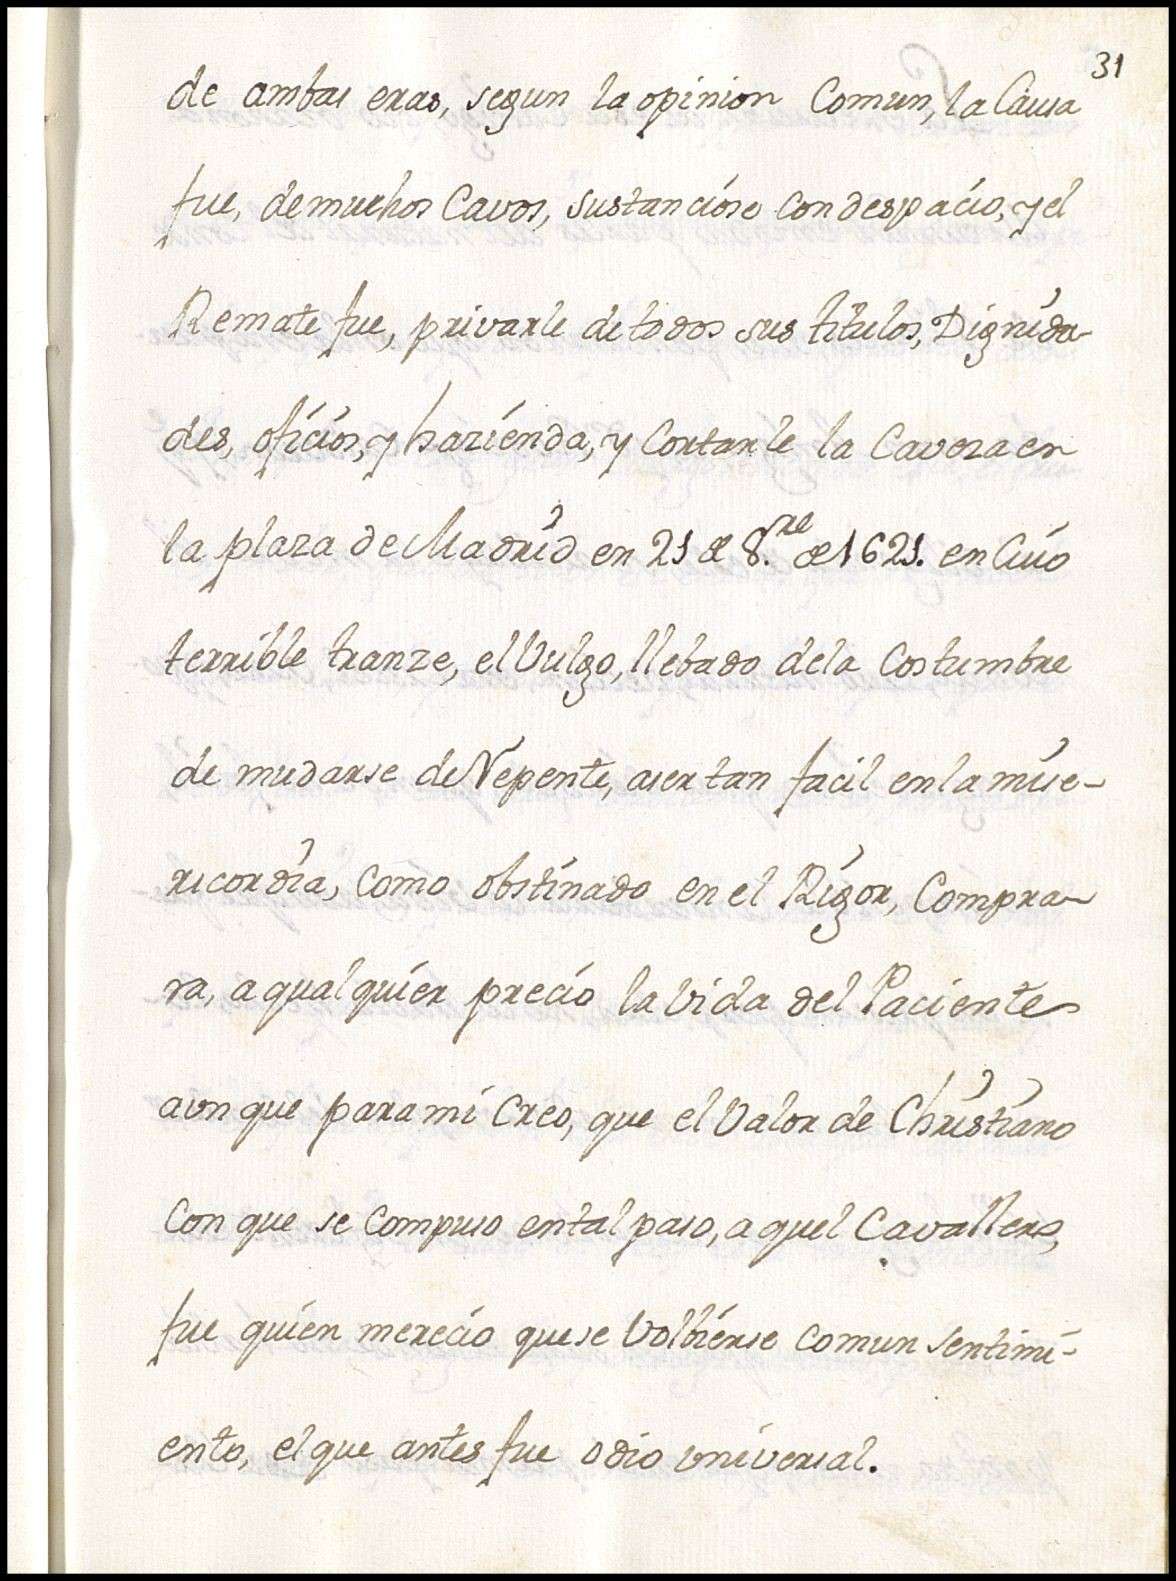 31
de ambas eras, segun la opinion Comun, la Causa
fue, de muchos Cavos, sustanciose Con despacio, y el
Remate fue, privarle de todos sus titulos, Dignida-
des, oficios, y hazienda, y Cortarle la Caveza en
la plaza de Madrid en 21 de 8.re de 1621. en Cuio
terrible tranze, el Vulgo, llebado de la Costumbre
de mudarse de Repente, a ser tan facil en la mise-
ricordia, Como obstinado en el Rigor, Compra-
ra, a qual quier precio la Vida del Paciente
aunque para mi Creo, que el Valor de Christiano
Con que se Compuso en tal paso, aquel Cavallero,
fue quien merecio que se Volbiense Comun Sentimi-
ento, el que antes fue odio universal.